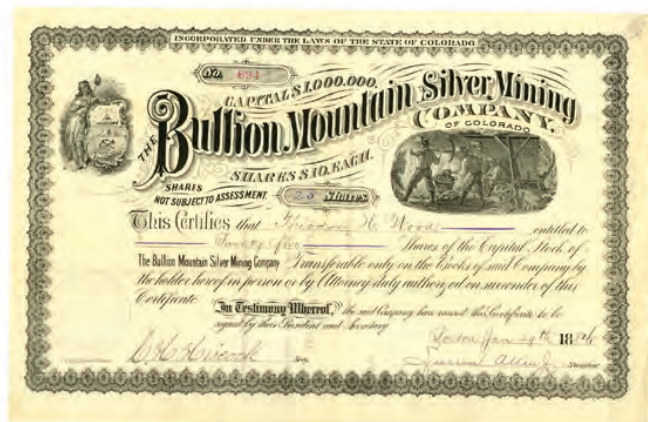 INCORPORATED UNDER THE LAWS OF THE STATE OF COLORADO.
No. 694
CAPITAL $1,000,000.
THE Bullion Mountain Silver Mining
COMPANY.
OF COLORADO
SHARES $10. EACH.
SHARES
NOT SUBJECT TO ASSESSMENT.
25 Shares
This Certifies that Theodore H. Woods entitled to
Twenty five Shares of the Capital Stock of
The Bullion Mountain Silver Mining Company Transferable only on the Books of said Company by
the holder hereof in person or by Attorney duly authorized on surrender of this
Certificate
In Testimony Whereof, the said Company have caused this Certificate to be
signed by their President and Secretary
Boston Jan 29th 188
Secy.
President